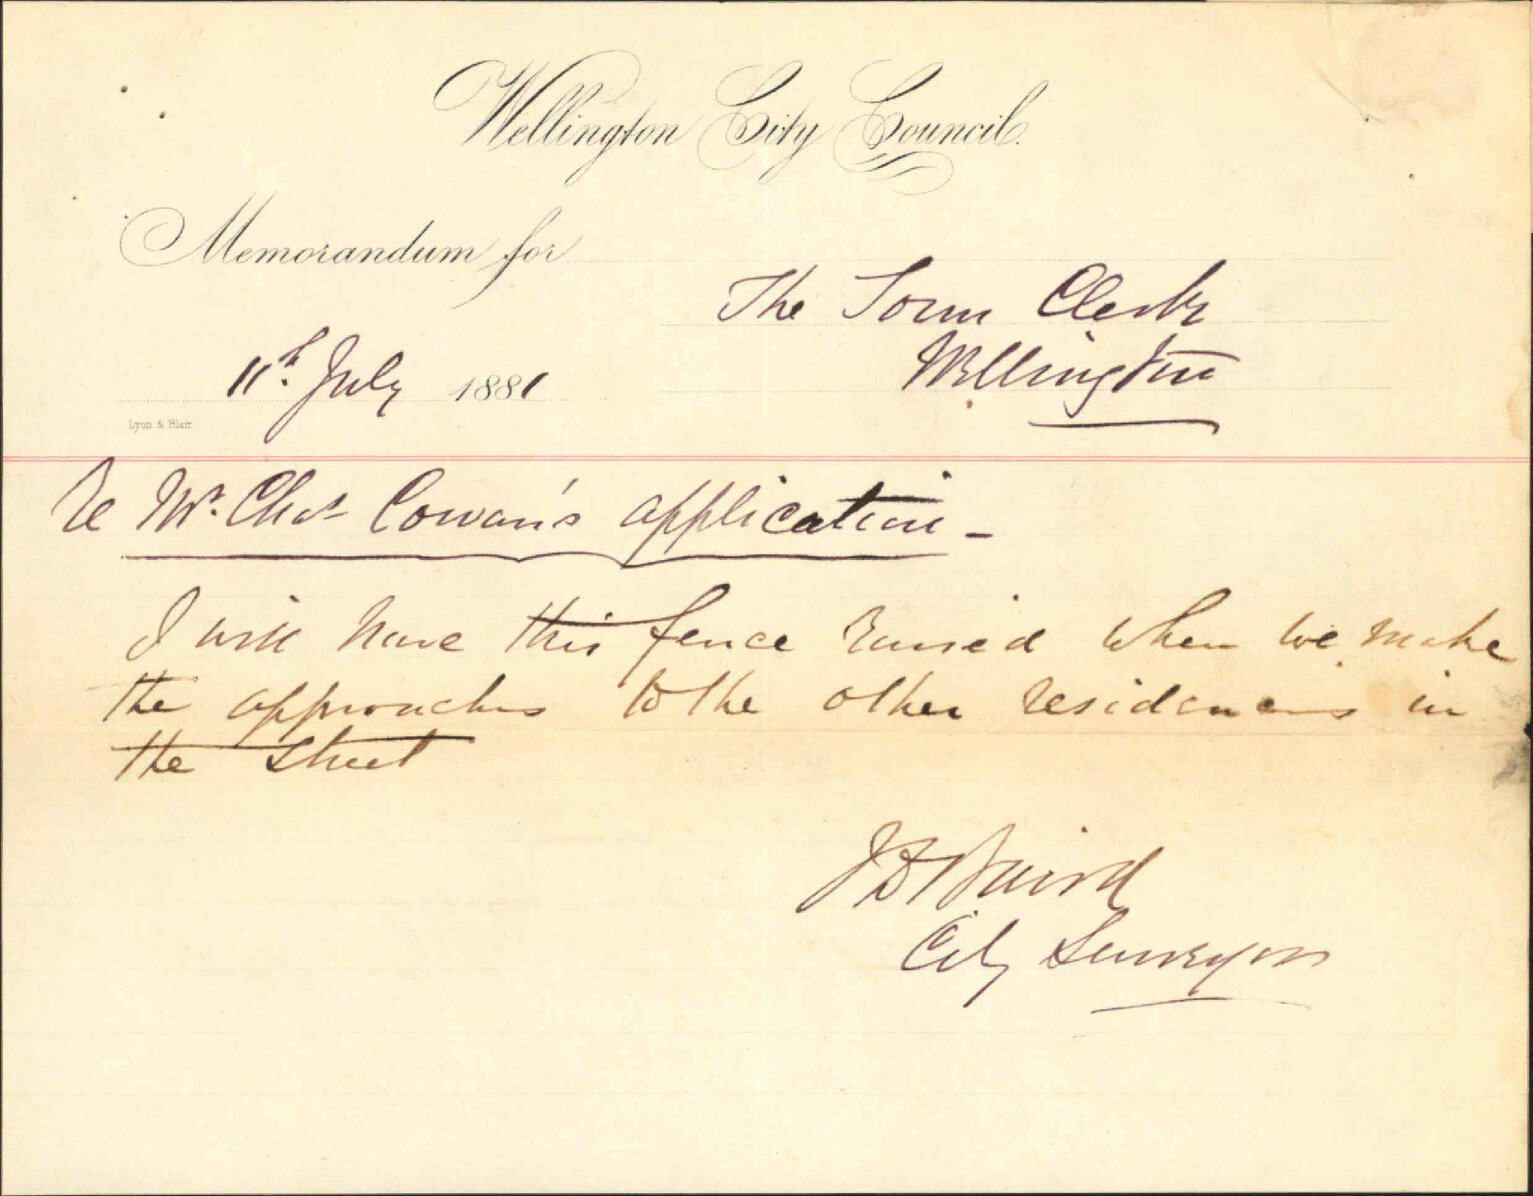 Wellington City Council.
Memorandum for
The Town Clerk
Wellington
11th. July 1881
Lyon & Blair
Re Mr. Chas Cowan's application -
I will have this fence raised when we make
the approaches to the other residences in
the street
J D Baird
City Surveyor